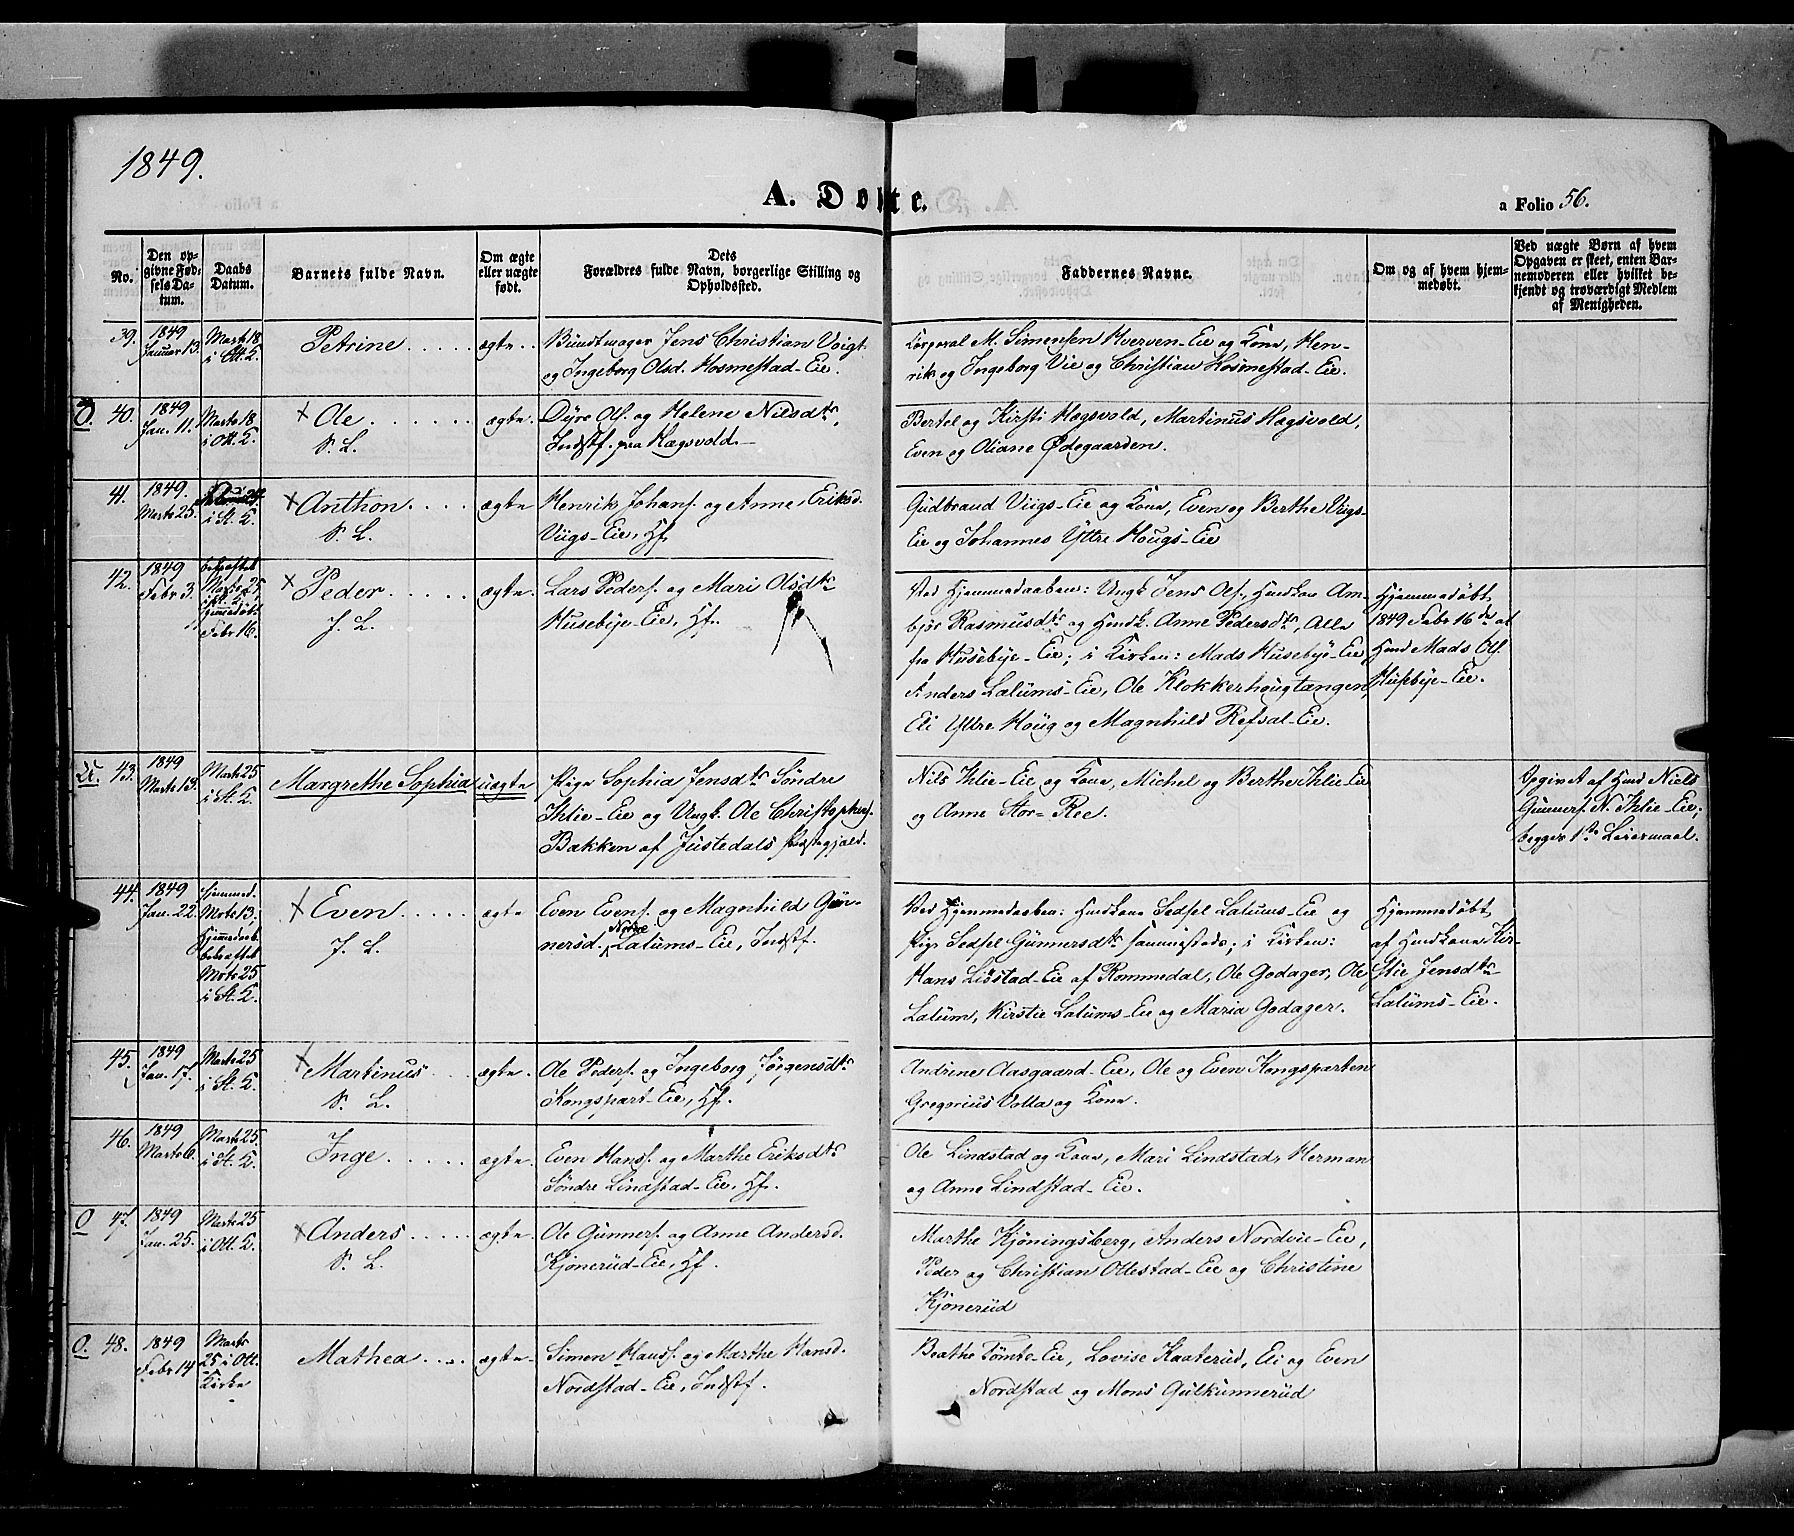 1849.
A. Døbte.
a Folio 56.
No.
Den op-
givne Fød-
sels Da-
tum.
Daabs
Datum.
Barnets fulde Navn.
Om ægte
eller uægte
født.
Dets
Forældres fulde Navn, borgerlige Stilling og
Opholdssted.
Faddernes Navne.
Om og af hvem hjem-
medøbt.
Ved uægte Børn af hvem
Opgaven er skeet, enten Bar-
nemoderen eller hvilket be-
kjendt og troværdigt Medlem
af Menigheden.
39.
1849
Januar 13.
Marts 18
i Ott. K.
Petrine
ægte
Bundtmager Jens Christian Voigt
og Ingeborg Olsd. Hosmestad-Eie.
Corporal M. Simensen Hverven-Eie og Kone, Hen-
rik og Ingeborg Vie og Christian Hosmestad-Eie.
O. 40.
1849
Jan. 11.
Marts 18
i Ott. K.
× Ole
S. L.
ægte
Dyre Ols. og Helene Nilsdtr,
Indstf. paa Hægsvold.
Bertel og Kirsti Hægsvold, Martinus Hægsvold,
Even og Oliane Ødegaarden.
41.
1849.
Marts 25.
i St. K.
× Anthon
S. L.
ægte
Henrik Johans. og Anne Eriksd.
Viigs-Eie, Hf.
Gudbrand Viigs-Eie og Kone, Even og Berthe Viigs-
Eie og Johannes Yttre Hougs-Eie
42.
1849
Febr 3.
bekræftet
Marts 25
i St. K.
hjemmedøbt
Febr 16.
× Peder
J. L.
ægte
Lars Peders. og Mari Olsdtr
Husebye-Eie, Hf.
Ved Hjemmedaaben: Ungk Jens Ols., Huuskone Am-
bjør Rasmusdtr og Huusk. Anne Pedersdtr, Alle
fra Husebye-Eie; i Kirken: Mads Husebye-Eie,
Anders Lalums-Eie, Ole Klokkerhougtangen,
Eli Yttre Houg og Magnhild Refsal-Eie.
Hjemmedøbt
1849 Febr 16de af
Huusmd Mads Ols.
Husebye-Eie.
U. 43.
1849
Marts 13.
Marts 25
i St. K.
Margrethe Sophia
uægte
Pige Sophia Jensdtr Søndre
Ihlie-Eie og Ungk. Ole Christophers.
Bakken af Justedals Præstegjæld.
Nils Ihlie-Eie og Kone, Michel og Berthe Ihlie-Eie
og Anne Stor-Ree.
Opgivet af Huusmd Niels
Gunners. N. Ihlie-Eie;
begges 1ste Leiermaal.
44.
1849
Jan. 22.
hjemmed.
Mrts 13.
Hjemmedaab.
bekræftet
Mrts 25
i St. K.
× Even
J. L.
ægte
Even Evens. og Magnhild Gun-
nersd. Nordre Lalums-Eie, Indstf.
Ved Hjemmedaaben: Huuskone Sedsel Lalums-Eie og
Pige Sedsel Gunnersdtr sammesteds; i Kirken:
Hans Lisstad-Eie af Rommedal, Ole Godager, Ole
Lalum, Kirstie Lalums-Eie og Maria Godager.
Hjemmedøbt
af Huuskone Kir-
stie Jensdtr
Lalums-Eie.
45.
1849
Jan. 17.
Marts 25
i St. K.
× Martinus
S. L.
ægte
Ole Peders. og Ingeborg Jørgensdtr
Kongspart-Eie, Hf.
Andrine Aasgaard-Eie, Ole og Even Kongsparten
Gregorius Volla og Kone.
46.
1849
Marts 6.
Marts 25.
i St. K.
Inge
ægte
Even Hans. og Marthe Eriksdtr
Søndre Lindstad-Eie, Hf.
Ole Lindstad og Kone, Mari Lindstad, Herman
og Anne Lindstad-Eie.
O 47.
1849
Jan. 25.
Marts 25
i Ott. K.
× Anders
S. L.
ægte
Ole Gunners. og Anne Andersd.
Kjønerud-Eie, Hf.
Marthe Kjøningsberg, Anders Nordvie-Eie,
Peder og Christian Ottestad-Eie og Christine
Kjønerud
O. 48.
1849
Febr 14
Marts
25 i Ott.
Kirke
Mathea
ægte
Simen Hans. og Marthe Hansd.
Nordstad-Eie, Indstf.
Beathe Tomte-Eie, Lovise Kaaterud, Eli og Even
Nordstad og Mons Gulkunnerud